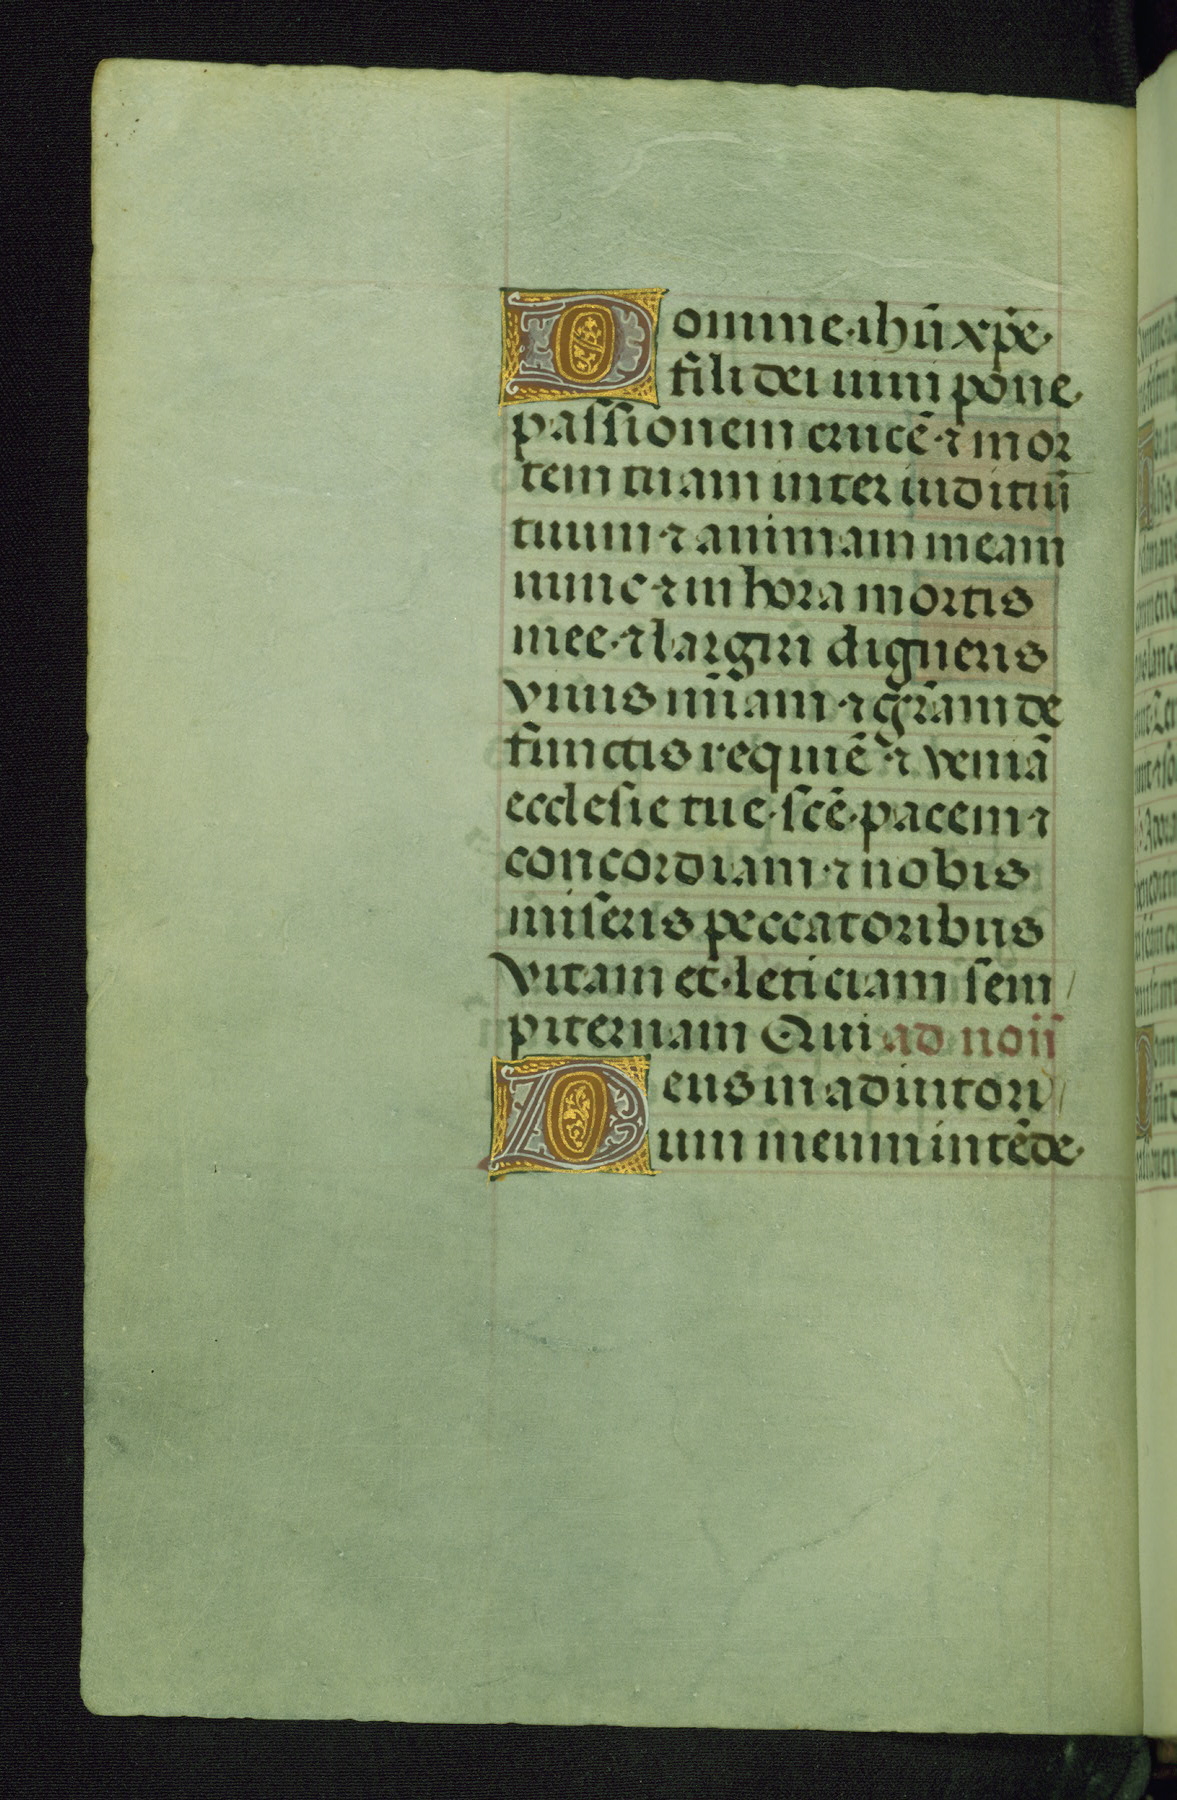 Domine·ihū xpē·
fili dei uiui pone
passionem crucē·⁊ mor
tem tuam inter iuditiū
tuum·⁊ animam meam
nunc·⁊ in hora mortis
mee·⁊ largiri digneris
viuis mīam·⁊ grām de
functis requiē·⁊ veniā
ecclesie tue·scē·pacem·⁊
concordiam·⁊ nobis
miseris peccatoribus
vitam et·leticiam sem/
piternam Qui ad noīī
Deus in adiutori/
um meum intēde·